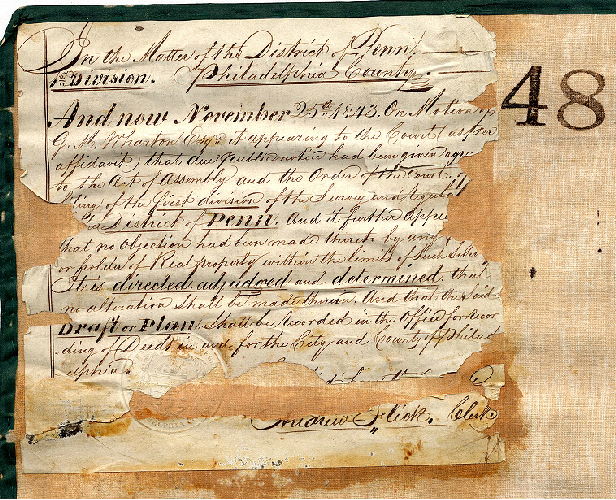 In the Matter of the District of Penn
1st Division. Philadelphia County
48
And now November 25th 1843. On Motion of
G. M. Wharton Esqr it appearing to the Court as per
affidavit, that due had been given agree
to the Act of Assembly and the Order of the Court,
ting of the first division of the Survey and
District of Penn. And it further Appea
that no objection had been made thereto by any
or holder of Real property within the limits of such
It is directed adjudged and determined, that
no alteration shall be made therein. And that the said
Draft or Plan, shall be recorded in the Office for Recor
ding of Deeds in and for the City and County of Philad
elphia.
Andrew Flick, Clerk